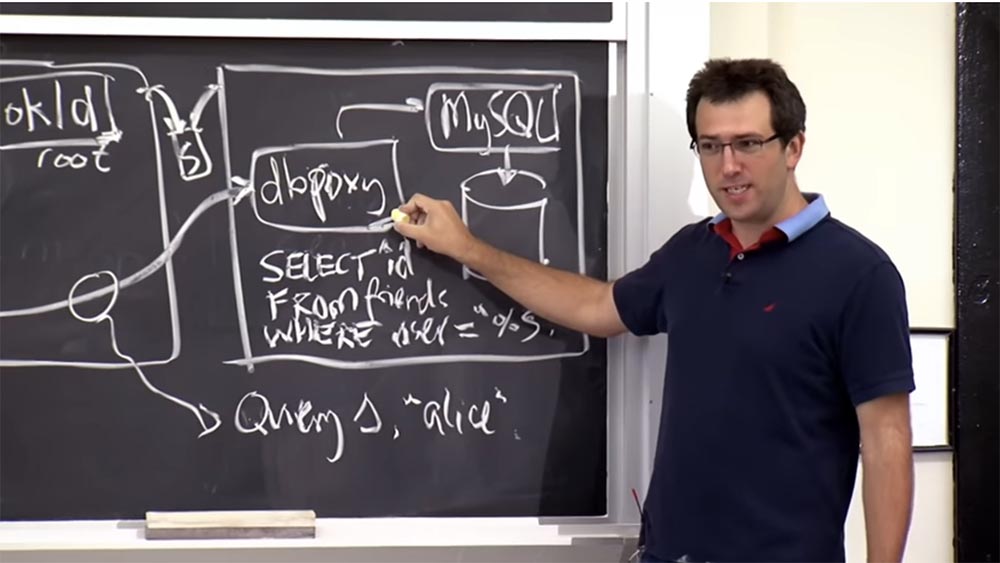 okld
root
S
MySQL
dbpoxy
SELECT "id
FROM friends
WHERE user = "%s.
Query S, "alice".